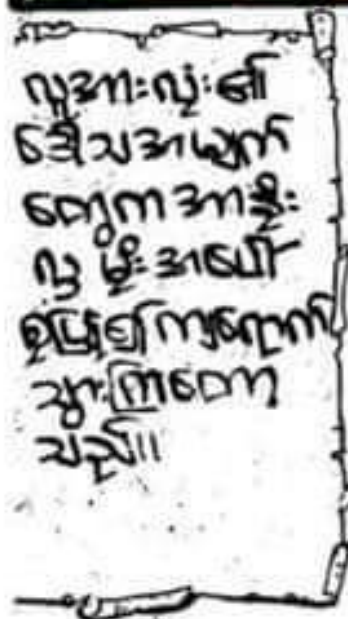 လူအားလုံး၏
ဒေါသအမျက်
တွေက အာဦး
လူ မိုးအပေါ်
စုပြုံ၍ကျရောက်
သွားကြတော့
သည်။